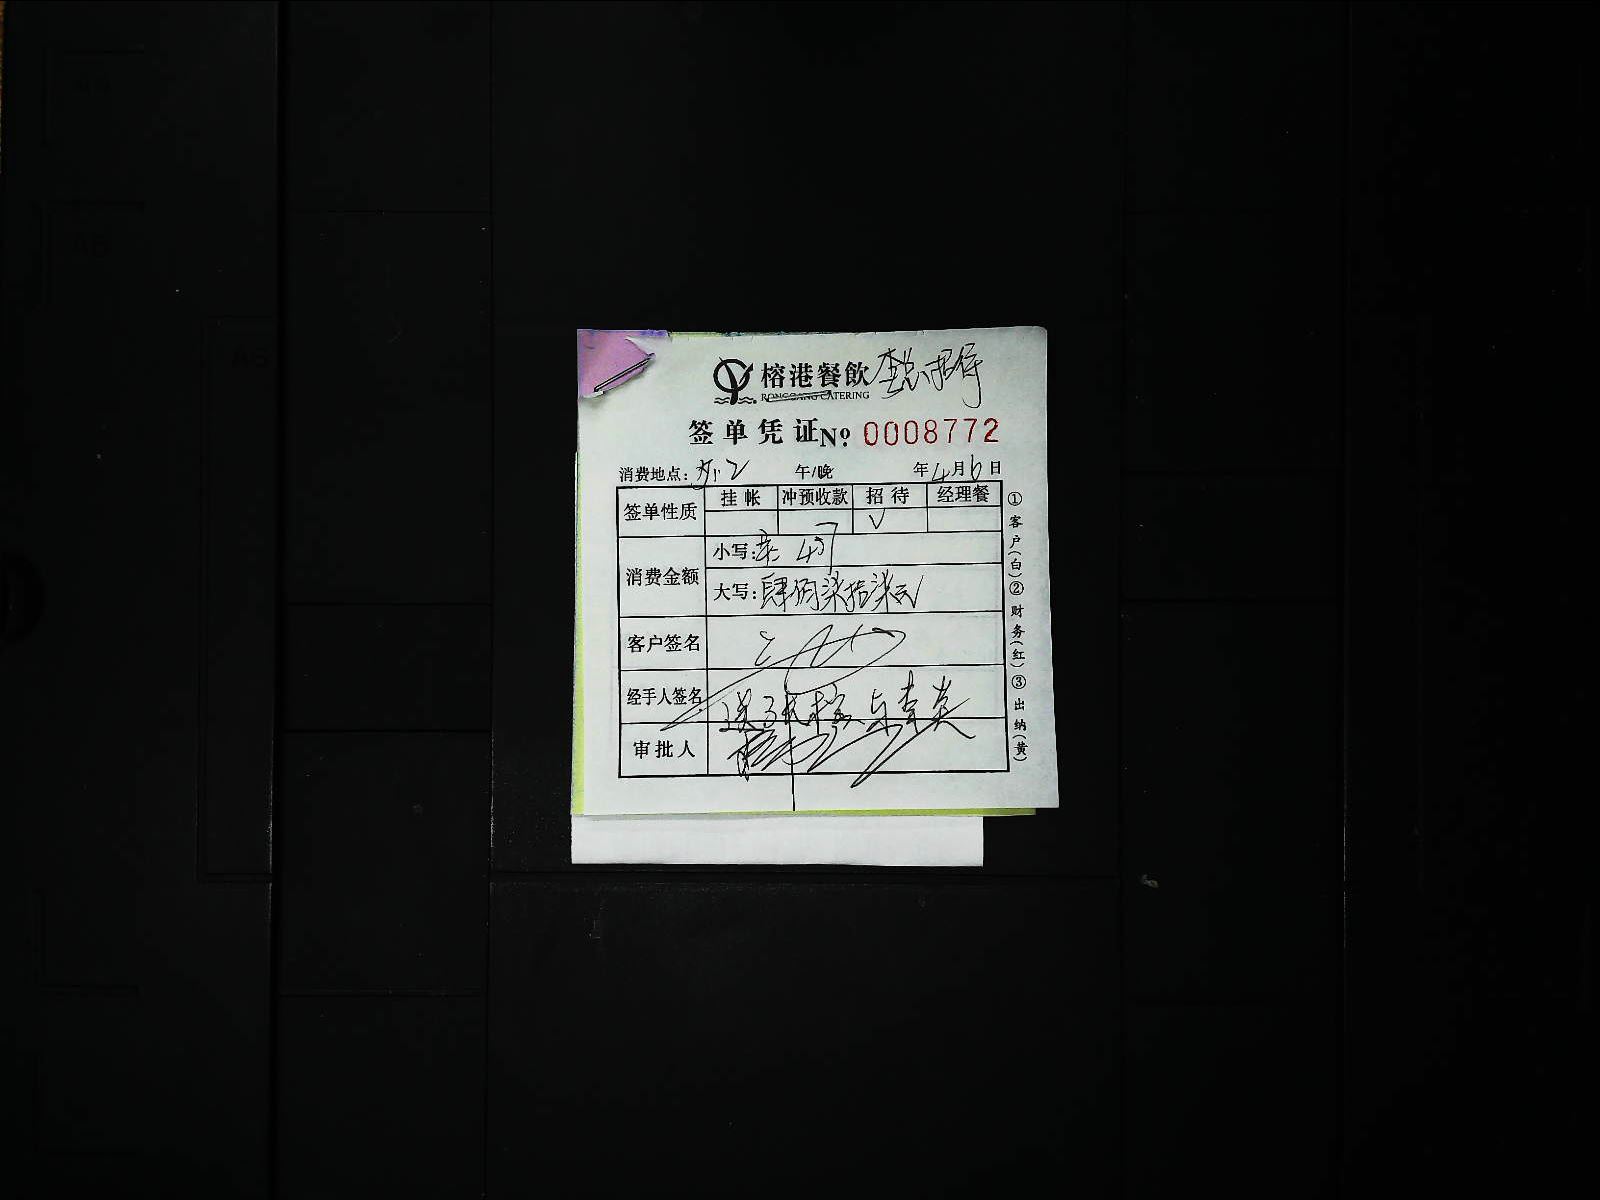 榕港餐飲 李总招待
RONGGANG CATERING
签单凭证 № 0008772
消费地点: 午/晚 年4月6日
签单性质 挂帐 冲预收款 招待 经理餐
√
消费金额 小写: 477
大写: 肆佰柒拾柒元
客户签名
经手人签名
审批人
①客户(白)②财务(红)③出纳(黄)
A6
A6